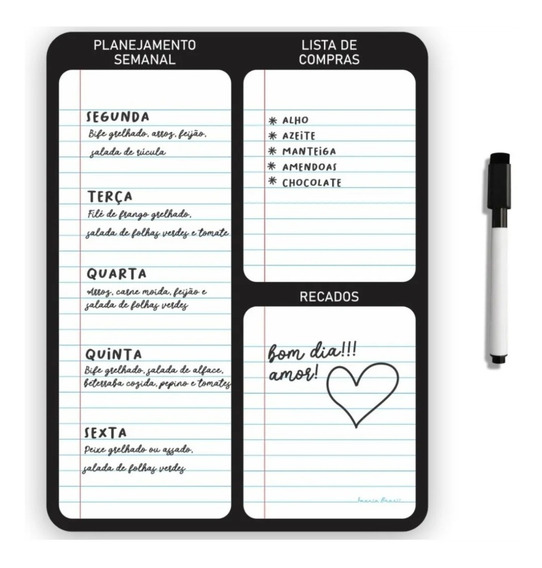 PLANEJAMENTO
SEMANAL
SEGUNDA
Bife grelhado, arroz, feijão,
salada de rúcula
TERÇA
Filé de frango grelhado,
salada de folhas verdes e tomate
QUARTA
Arroz, carne moída, feijão e
salada de folhas verdes
QUINTA
Bife grelhado, salada de alface,
beterraba cozida, pepino e tomates
SEXTA
Peixe grelhado ou assado,
salada de folhas verdes
LISTA DE
COMPRAS
* ALHO
* AZEITE
* MANTEIGA
* AMENDOAS
* CHOCOLATE
RECADOS
bom dia!!!
amor!